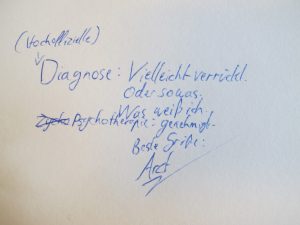 (Hochoffizielle)
Diagnose: Vielleicht verrückt.
Oder sowas.
Was weiß ich.
Psychotherapie: genehmigt.
Beste Grüße:
Arzt